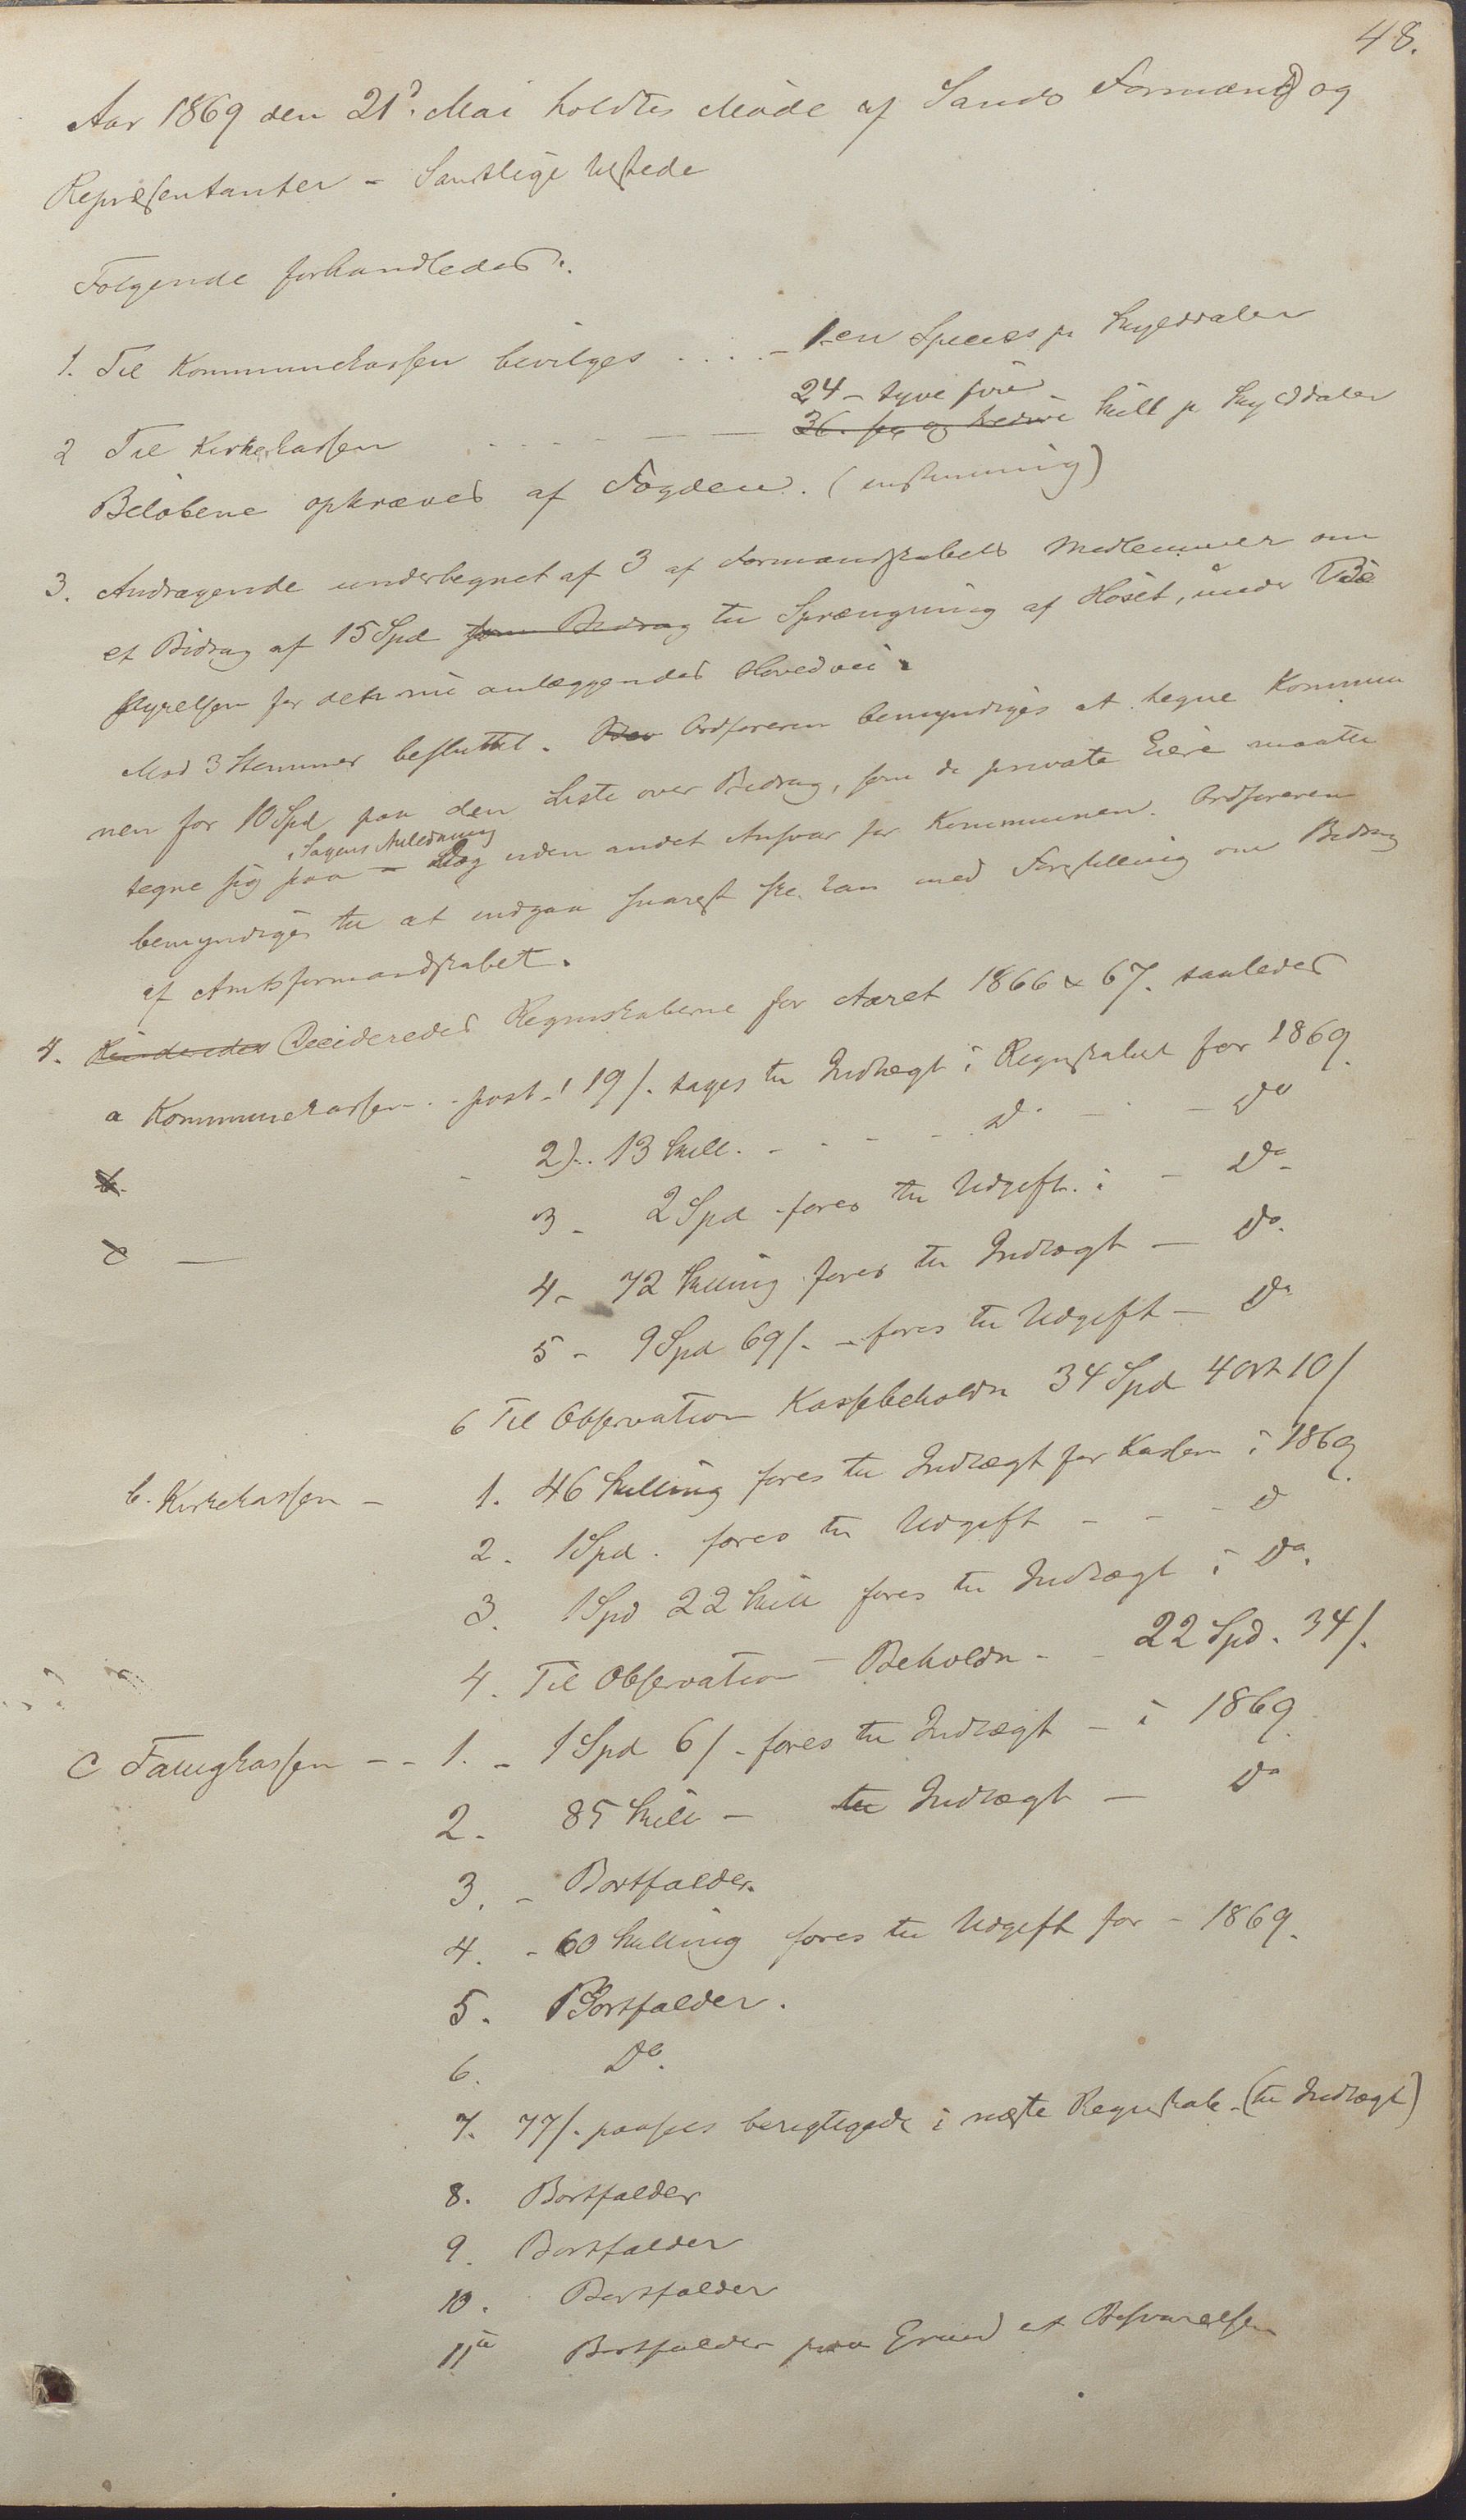 48.
Aar 1869 den 21d. Mai holdtes Møde af Sands Formænd og
Repræsentanter – Samtlige tilstede
Følgende forhandledes:
1. Til Kommunekassen bevilges . . . . – 1-en Species pr Skylddaler
24 – tyve fire
2 Til Kirkekassen . . . . – – 36. sex og tredive Skill pr Skylddaler
Beløbene opkræves af Fogden. (enstemmig)
3. Andragende undertegnet af 3 af Formandskabets Medlemmer om
et Bidrag af 15 Spd som Bidrag til Sprængning af Høset, under Vei
styrelsen for det nu anlæggendes Hovedvei.
Mod 3 Stemmer besluttet. Ordføreren bemyndiges at tegne Kommu
nen for 10 Spd paa den Liste over Bidrag, som de private Eiere maatte
i Sagens Anledning
tegne sig paa – Dog uden andet Ansvar for Kommunen. Ordføreren
bemyndiges til at indgaa snarest ske kan med Forestilling om Bidrag
af Amtsformandskabet.
4. Decideredes Regnskaberne for Aaret 1866 & 67. saaledes
a Kommunekassen . – post – 1 19/. tages til Indtægt i Regnskabet for 1869.
b. – 2). 13 Skill. – – – – D. – – Do
3 – 2 Spd føres til Udgift. i – Do
c – 4 – 72 Skilling føres til Indtægt – Do.
5 – 9 Spd 69/. – føres til Udgift – Do
6 Til Observation Kassebeholdn 34 Spd 4 Ort 10/
b. Kirkekassen – 1. 46 Skilling føres til Indtægt for Kassen i 1869
2. 1 Spd. føres til Udgift – – – D
3. 1 Spd 22 Skill føres til Indtægt i Do.
4. Til Observation – Beholdn – – 22 Spd. 34/.
C Fattigkassen – – 1. – 1 Spd 6/ – føres til Indtægt – i 1869
2. 85 Skill – til Indtægt – Do
3. – Bortfalder.
4. – 60 Skilling føres til Udgift for – 1869.
5. Bortfalder.
6. Do.
7. 77/. paasees berigtigede i næste Regnskab – (til Indtægt)
8. Bortfalder
9. Bortfalder
10. Bortfalder
11te Bortfalder paa Grund af Besvarelsen